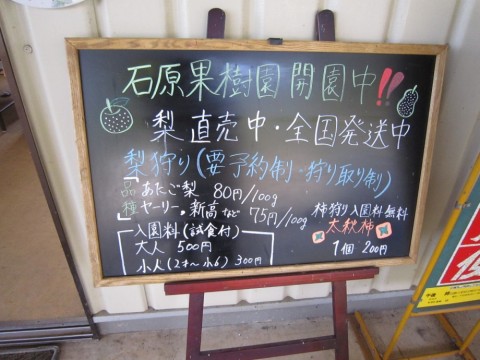 石原果樹園 開園中!!
梨 直売中・全国発送中
梨狩り(要予約制・狩り取り制)
品種
あたご梨 80円/100g
ヤーリー。新高など 75円/100g
入園料(試食付)
大人 500円
小人(2才~小6) 300円
柿狩り入園料無料
太秋柿
1個 200円